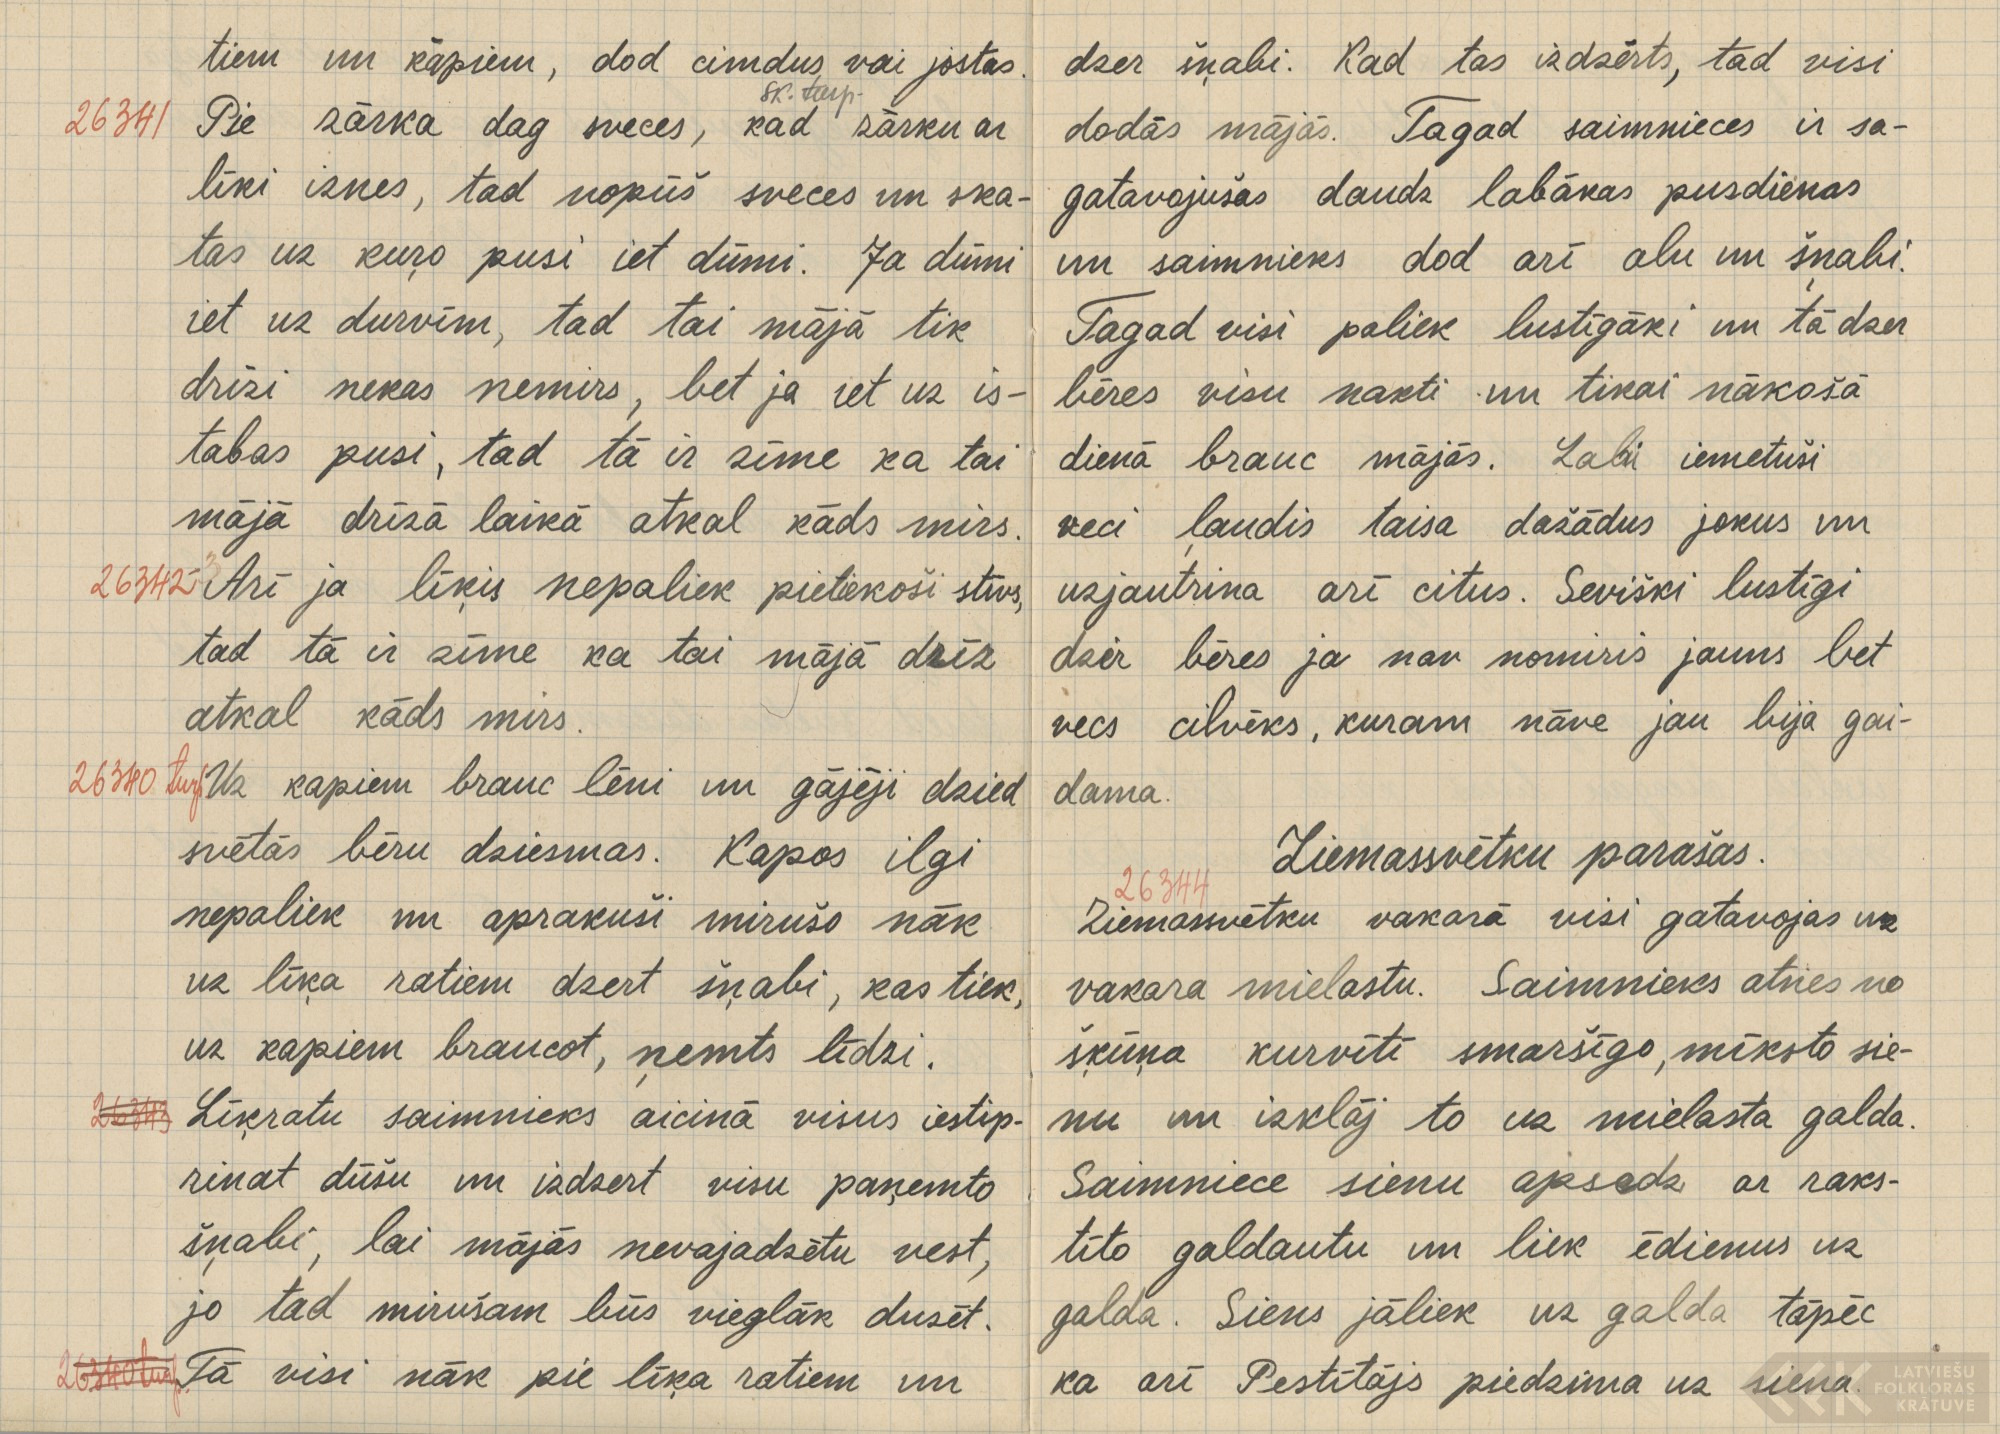 tiem un kāpiem, dod cimdus vai jostas.
sk. turp.
26341 Pie zārka dag sveces, kad zārku ar
līķi iznes, tad nopūš sveces un ska-
tas uz kuŗo pusi iet dūmi. Ja dūmi
iet uz durvīm, tad tai mājā tik
drīzi nekas nemirs, bet ja iet uz is-
tabas pusi, tad tā ir zīme ka tai
mājā drīzā laikā atkal kāds mirs.
26342 Arī ja līķis nepaliek pietiekoši stīvs,
tad tā ir zīme ka tai mājā drīz
atkal kāds mirs.
26340 turp. Uz kapiem brauc lēni un gājēji dzied
svētās bēru dziesmas. Kapos ilgi
nepaliek un aprakuši mirušo nāk
uz līķa ratiem dzert šņabi, kas tiek,
uz kapiem braucot, ņemts līdzi.
26343 Līķratu saimnieks aicinā visus iestip-
rināt dūšu un izdzert visu paņemto
šņabi, lai mājās nevajadzētu vest,
jo tad mirušam būs vieglāk dusēt.
26340 turp. Tā visi nāk pie līķa ratiem un
dzer šņabi. Kad tas izdzērts, tad visi
dodās mājās. Tagad saimnieces ir sa-
gatavojušas daudz labākas pusdienas
un saimnieks dod arī alu un šņabi.
Tagad visi paliek lustīgāki un tā dzer
bēres visu nakti un tikai nākošā
dienā brauc mājās. Labi iemetuši
veci ļaudis taisa dažādus jokus un
uzjautrina arī citus. Sevišķi lustīgi
dzer bēres ja nav nomiris jauns bet
vecs cilvēks, kuram nāve jau bija gai-
dama.
Ziemassvētku parašas.
26344
Ziemassvētku vakarā visi gatavojas uz
vakara mielastu. Saimnieks atnes no
šķūņa kurvīti smaršīgo, mīksto sie-
nu un izklāj to uz mielasta galda.
Saimniece sienu apsedz ar raks-
tīto galdautu un liek ēdienus uz
galda. Siens jāliek uz galda tāpēc
ka arī Pestītājs piedzima uz siena.
LATVIEŠU
FOLKLORAS
KRĀTUVE